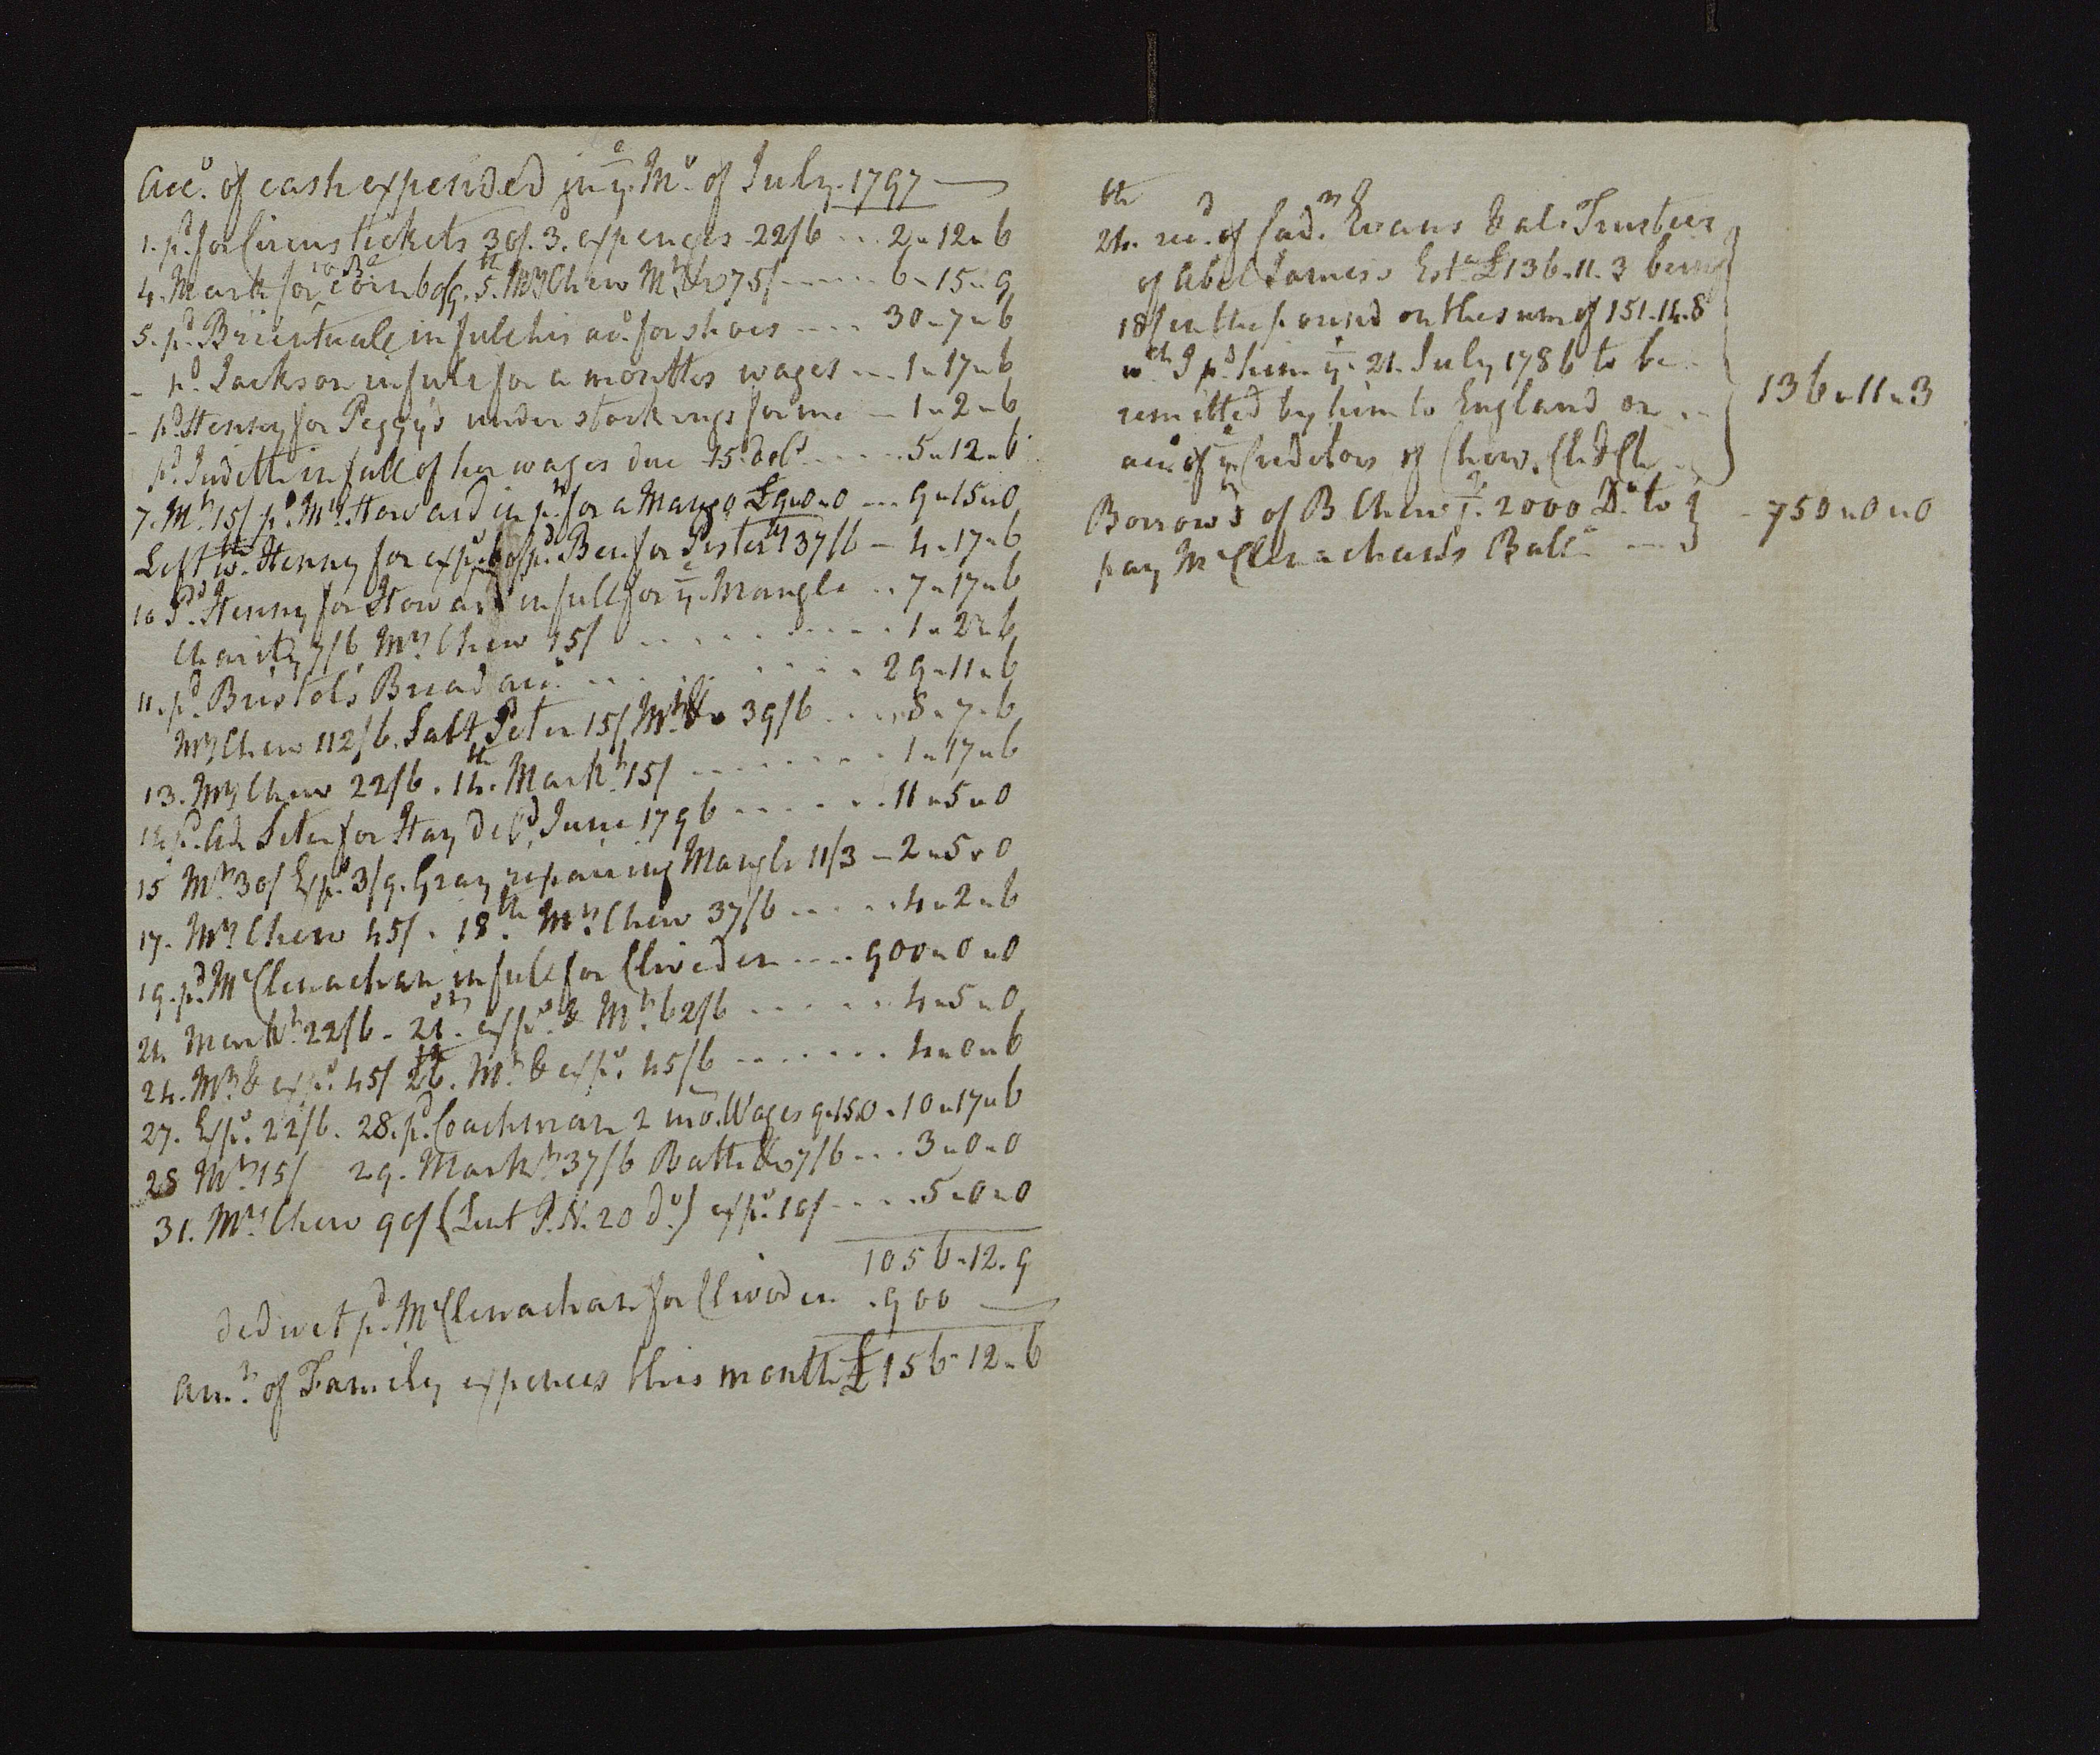 Acco. of cash expended in ye. Mo. of July. 1797
1. pd. for Circus tickets 30/. 3. expences 22/6 ... 2"12"6
4. Mark for 10 Bs corn 60/9. 5th. Mrs Chew Mt. &c 75/ ..... 6"15"9
5. pd. in full his acco. for shoes .... 30"7"6
- pd. Jackson in full for a months wages ... 1"17"6
- pd. Henny for Peggy's under stockings for me - 1"2"6
pd. Judeth in full of her wages due 15. dols ..... 5"12"6
7. Mt. 15/ pd. Mr. Howard in pt. for a Mangle £9"0"0 ... 9"15"0
Left wth. Henny for exps. 60/ pd. Ben for 37/6 - 4"17"6
10 Pd. Henny for Howard in full for ye. Mangle .. 7"17"6
Charity 7/6 Mrs. Chew 15/ .......... 1"2"6
11. pd. Bristol's Bread acco. ....... 29"11"6
Mrs Chew 112/6. Salt Peter 15/ Mt. &c 39/6 .... 8"7"6
13. Mrs Chew 22/6. 14th. Markt. 15/ ........ 1"17"6
14 pd. for Hay deld. June 1796 ....... 11"5"0
15 Mt. 30/ Exps. 3/9. Gray repairing Mangle 11/3 - 2"5"0
17. Mrs Chew 45/. 18th. Mrs. Chew 37/6 ..... 4"2"6
19. pd. McClenachan in full for Cliveden .... 900"0"0
21. Markt. 22/6 - 21st. exps. & Mt. 62/6 ...... 4"5"0
24. Mt. & exps. 45/ 26th. Mt. & exps. 45/6 ....... 4"0"6
27. Exps. 22/6. 28. pd. Coachman 2 mo. Wages 9"15"0 . 10"17"6
28 Mt. 15/ 29. Markt. 37/6 &c 7/6 ... 3"0"0
31. Mrs. Chew 90/ (Lent P. N. 20 do.) exps. 10/ .... 5"0"0
1056"12.9
deduct pd. McClenachan for Cliveden . 900
Amt. of Family expences this month £156"12"6
24th. recd. of Cadr. Evans & al. Trustees
of Abel James's Esta. £136.11.3 being
18/ in the pound on the sum of 151.14.8
wch. I pd. him ye. 21. July 1786 to be
remitted by him to England on
acco. of ye. Creditors of Chew, Ch. & Ch
136"11"3
Borrow'd of B Chew Jr. 2000 Ds. to
pay McClenachan's Balle
750"0"0